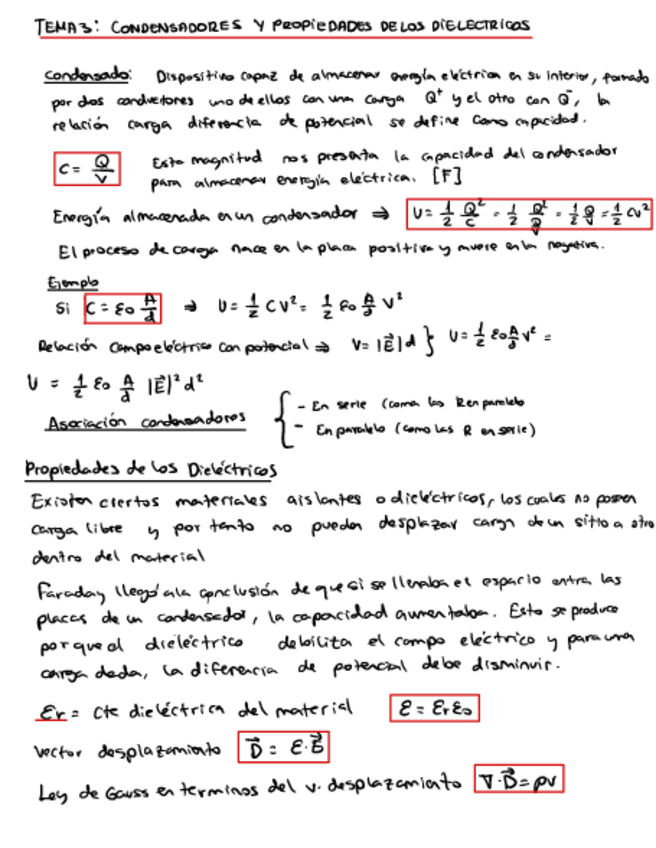 TEMA 3: CONDENSADORES Y PROPIEDADES DE LOS DIELECTRICOS
Condensado: Dispositivo capaz de almacenar energía eléctrica en su interior, formado
por dos conductores uno de ellos con una carga Q⁺ y el otro con Q⁻, la
relación carga diferencia de potencial se define como capacidad.
C = Q/V Esta magnitud nos presenta la capacidad del condensador
para almacenar energía eléctrica. [F]
Energía almacenada en un condensador ⇒ U = 1/2 Q²/C = 1/2 Q²/(Q/V) = 1/2 QV = 1/2 CV²
El proceso de carga nace en la placa positiva y muere en la negativa.
Ejemplo
Si C = ε₀ A/d ⇒ U = 1/2 CV² = 1/2 ε₀ A/d V²
Relación campo eléctrico con potencial ⇒ V = |E⃗| d } U = 1/2 ε₀ A/d V² =
U = 1/2 ε₀ A/d |E⃗|² d²
Asociación condensadores { - En serie (como las R en paralelo
- En paralelo (como las R en serie)
Propiedades de los Dieléctricos
Existen ciertos materiales aislantes o dieléctricos, los cuales no poseen
carga libre y por tanto no pueden desplazar carga de un sitio a otro
dentro del material
Faraday llegó a la conclusión de que si se llenaba el espacio entra las
placas de un condensador, la capacidad aumentaba. Esto se produce
porque el dieléctrico debilita el campo eléctrico y para una
carga dada, la diferencia de potencial debe disminuir.
εr = cte dieléctrica del material ε = εr ε₀
Vector desplazamiento D⃗ = ε·E⃗
Ley de Gauss en terminos del v. desplazamiento ∇·D⃗ = ρv